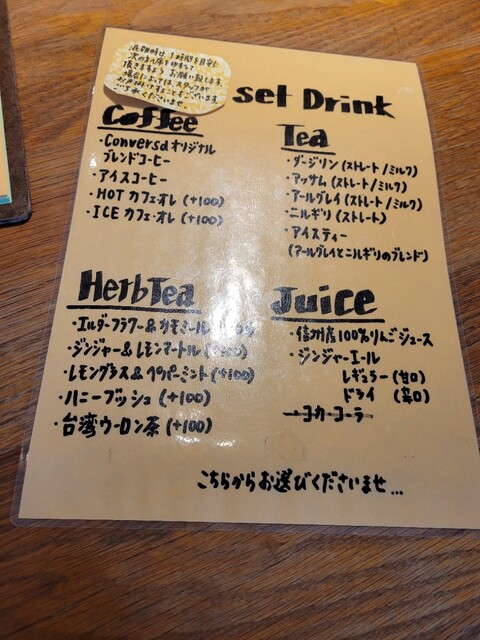 混雑時は1時間を目安に
次のお客様
頂きますよう お願い致します
場合によっては、スタッフが
お声掛けすることもございます
ご了承くださいませ
set Drink
Coffee
・Conversa オリジナル
ブレンドコーヒー
・アイスコーヒー
・HOT カフェ・オレ (+100)
・ICE カフェ・オレ (+100)
Tea
・ダージリン (ストレート/ミルク)
・アッサム (ストレート/ミルク)
・アールグレイ (ストレート/ミルク)
・ニルギリ (ストレート)
・アイスティー
(アールグレイとニルギリのブレンド)
HerbTea
・エルダーフラワー&カモミール
・ジンジャー&レモンマートル (+100)
・レモングラス&ペパーミント (+100)
・ハニーブッシュ (+100)
・台湾ウーロン茶 (+100)
Juice
・信州産100%りんごジュース
・ジンジャーエール
レギュラー (甘口)
ドライ (辛口)
・コカ・コーラ
こちらからお選びくださいませ...